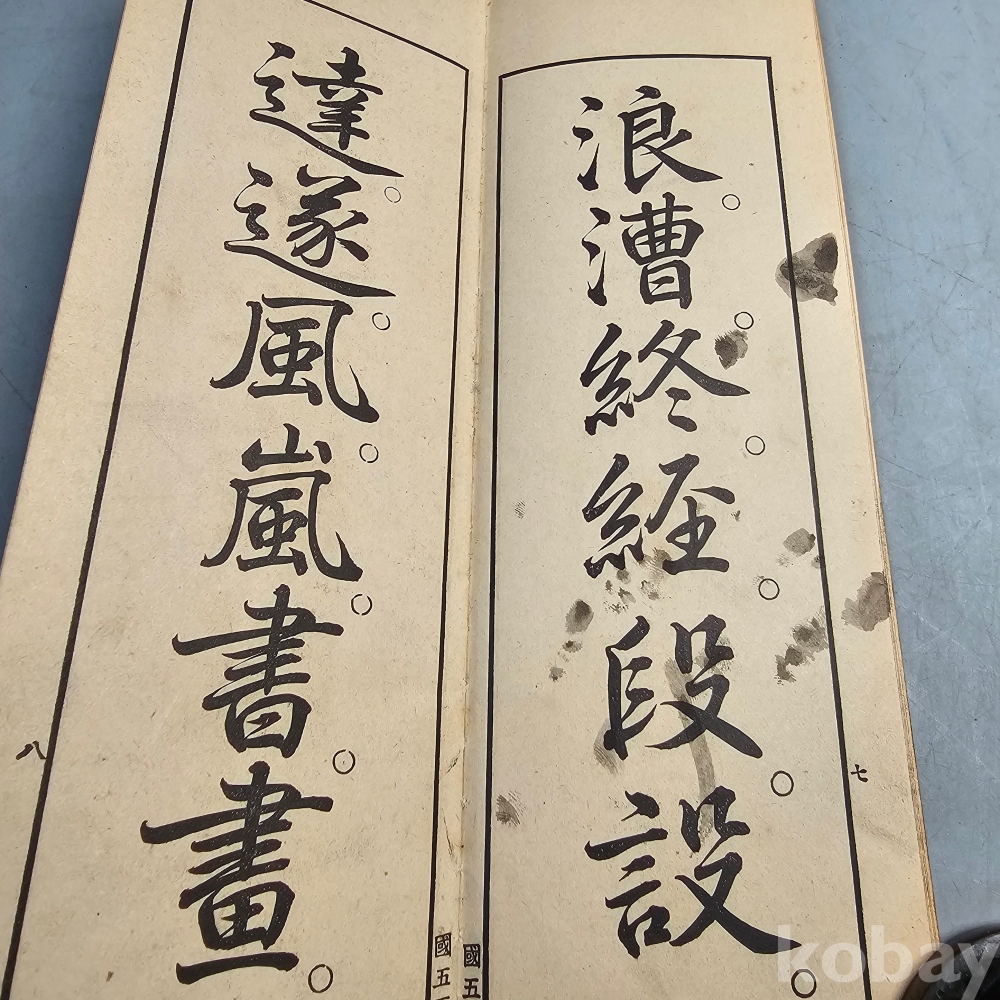 浪。漕。終。経。段。設。
七
國五
達。遂。風。嵐。書。畫。
八
國五
kobay